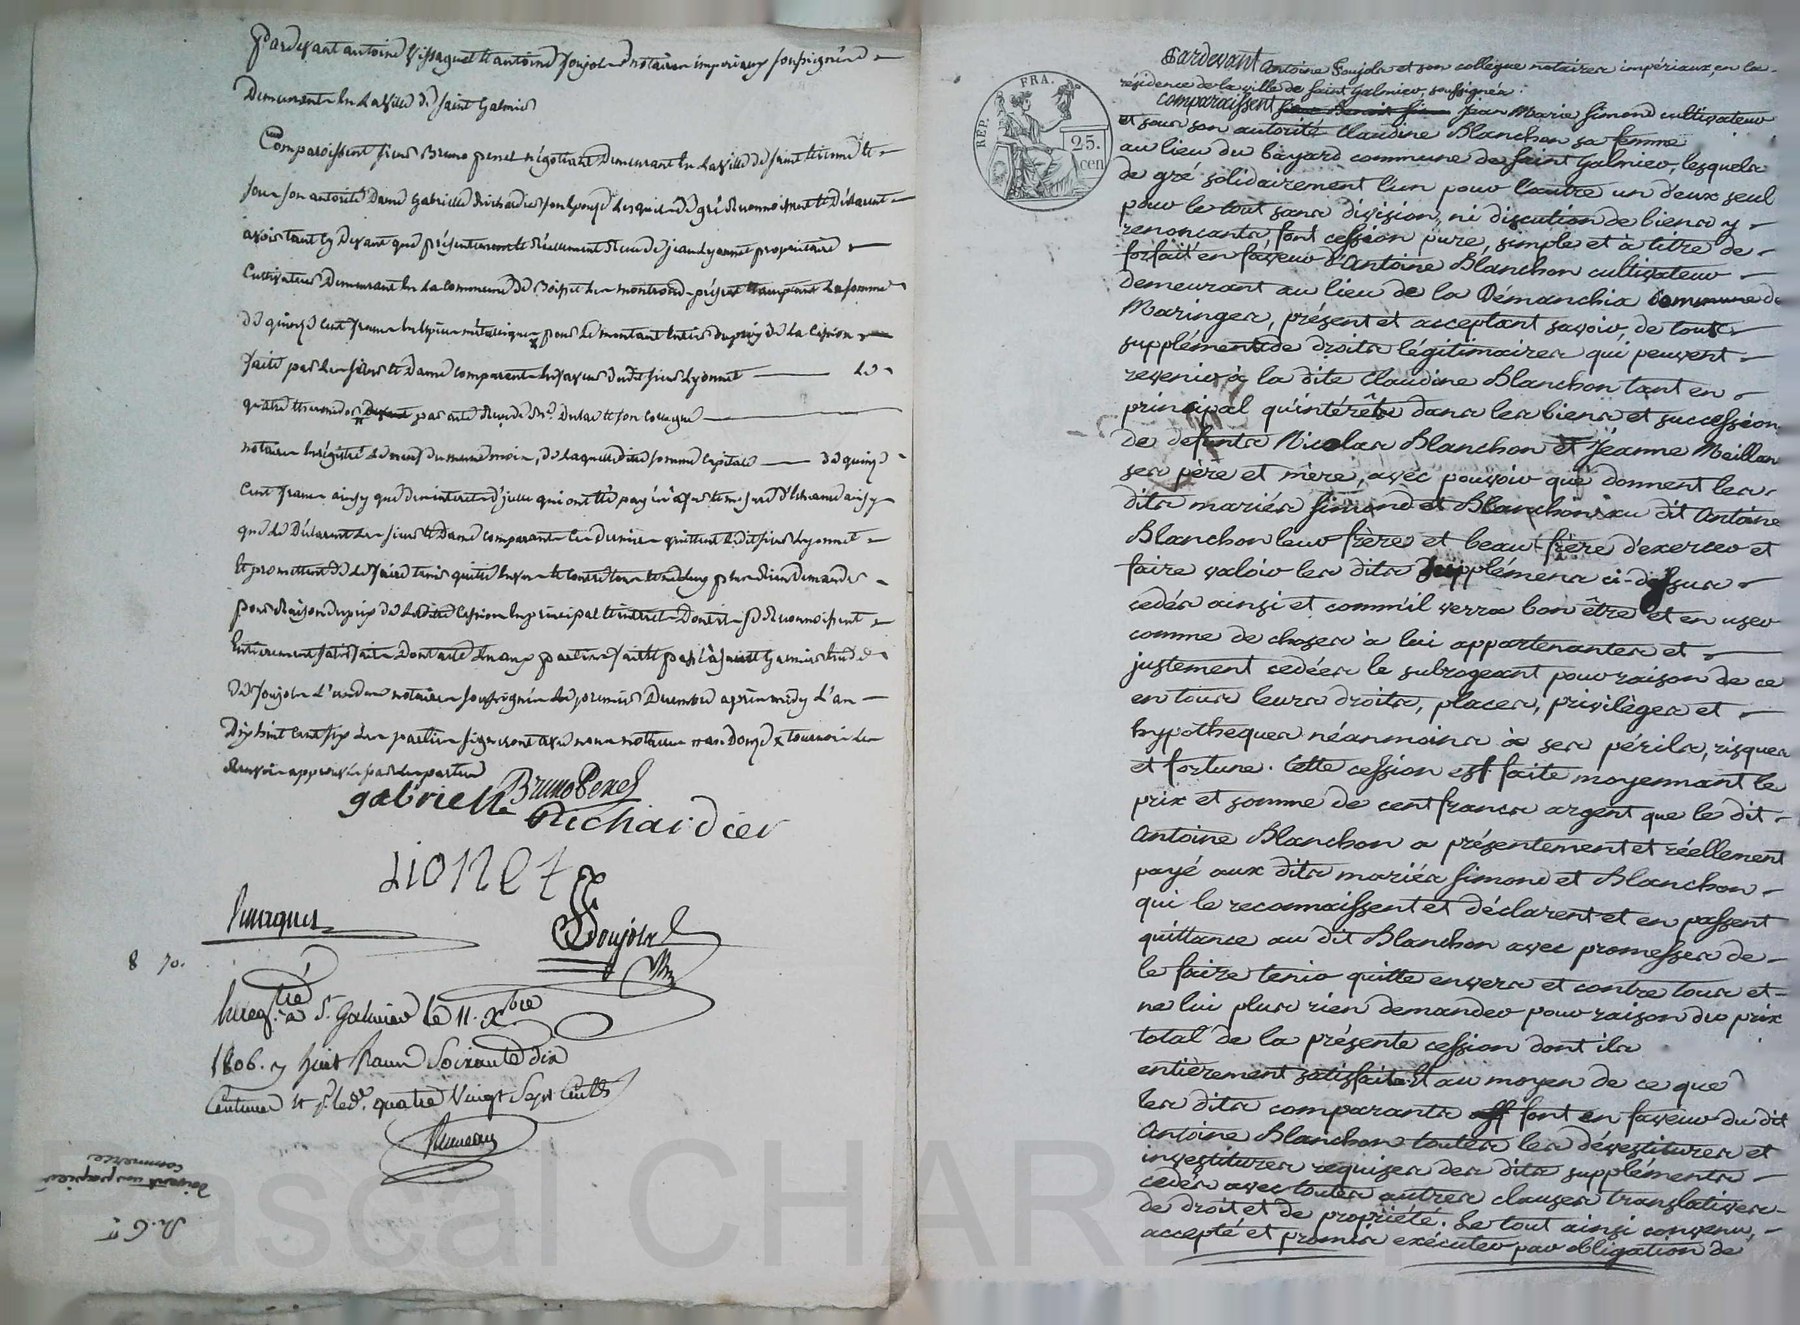 Pardevant antoine Vissaguet et antoine Soujols notaires imperiaux soussignés
Demeurants en la ville de Saint Galmier
Comparoissent sieur Bruno penel négotiant Demeurant en la ville de saint etienne et
sous son autorité Dame Gabrielle Richardier son Epouse Lesquels de gré Reconnoissent et Déclarent
avoir tant cy devant que présentement et réellement Reçu de jean Lyonnet propriétaire
Cultivateur Demeurant en la Commune de Boisset Les montrond présent et acceptant La somme
de quinze cent francs en espèces métalliques pour le montant entier du prix de la Cession
faite par les sieur et Dame comparants en faveur dudit sieur Lyonnet Le
quatre par acte Reçu de Me. Dulac et son Collegue
notaires enregistré Le neuf du meme mois, de laquelle dite somme Capitale de quinze
Cent francs ainsy que des interets d'icelle qui ont été payés ainsy
que le Déclarent Les sieur et Dame comparants Ces derniers quittent Ledit sieur Lyonnet
et promettent de le faire tenir quitte envers et contre tous et ne luy plus rien Demander
pour Raison du prix de Ladite Cession en principal et interets Dont ils se Reconnoissent
Entierement satisfaits Dont acte Lu aux parties fait et passé à saint Galmier Etude
de Soujols L'un des notaires soussignés Le premier Decembre après midy L'an
Dix huit Cent six Les parties signeront avec nous notaires
Renvoi approuvé par les parties
Bruno Penel
gabrielle Richardier
Lionet
Soujols
8 70.
Enreg.tré à St. Galmier le 11. Xbre
1806. Reçu huit francs Soixante dix
Centimes et pr. led. quatre Vingt Sept Centes
commerce
REP. FRA.
25.
cen
Pardevant Antoine Soujols et son collègue notaires impériaux, en la
résidence de la ville de Saint Galmier, soussignés :
comparaissent Jean Marie Simond cultivateur
et sous son autorité Claudine Blanchon sa femme
au lieu du bayard commune de Saint Galmier, lesquels
de gré solidairement l'un pour l'autre un d'eux seul
pour le tout sans division, ni discution de biens y
renoncants, font cession pure, simple et à titre de
forfait en faveur d'Antoine Blanchon cultivateur
demeurant au lieu de la Démanchia commune de
Maringes, présent et acceptant savoir, de tout
supplément de droits légitimaires qui peuvent
revenir à la dite Claudine Blanchon tant en
principal qu'intérêts dans les biens et succession
de defunts Nicolas Blanchon et Jeanne Meillan
ses père et mère, avec pouvoir que donnent les
dits mariés Simond et Blanchon au dit Antoine
Blanchon leur frère et beau-frère d'exercer et
faire valoir les dits supplémens ci-dessus
cedés ainsi et comm'il verra bon être et en user
comme de choses à lui appartenantes et
justement cedées le subrogeant pour raison de ce
en tous leurs droits, places, privilèges et
hypotheques néanmoins à ses périls, risques
et fortune. Cette cession est faite moyennant le
prix et somme de cent francs argent que le dit
Antoine Blanchon a présentement et réellement
payé aux dits mariés Simond et Blanchon
qui le reconnaissent et déclarent et en passent
quittance au dit Blanchon avec promesses de
le faire tenir quitte envers et contre tous et
ne lui plus rien demander pour raison du prix
total de la présente cession dont ils
entièrement satisfaits. Et au moyen de ce que
les dits comparants font en faveur du dit
Antoine Blanchon toutes les dévestitures et
investitures requises des dits suppléments
cedés avec toutes autres clauses translatives
de droit et de propriété. Le tout ainsi convenu,
accepté et promis exécuter par obligation de